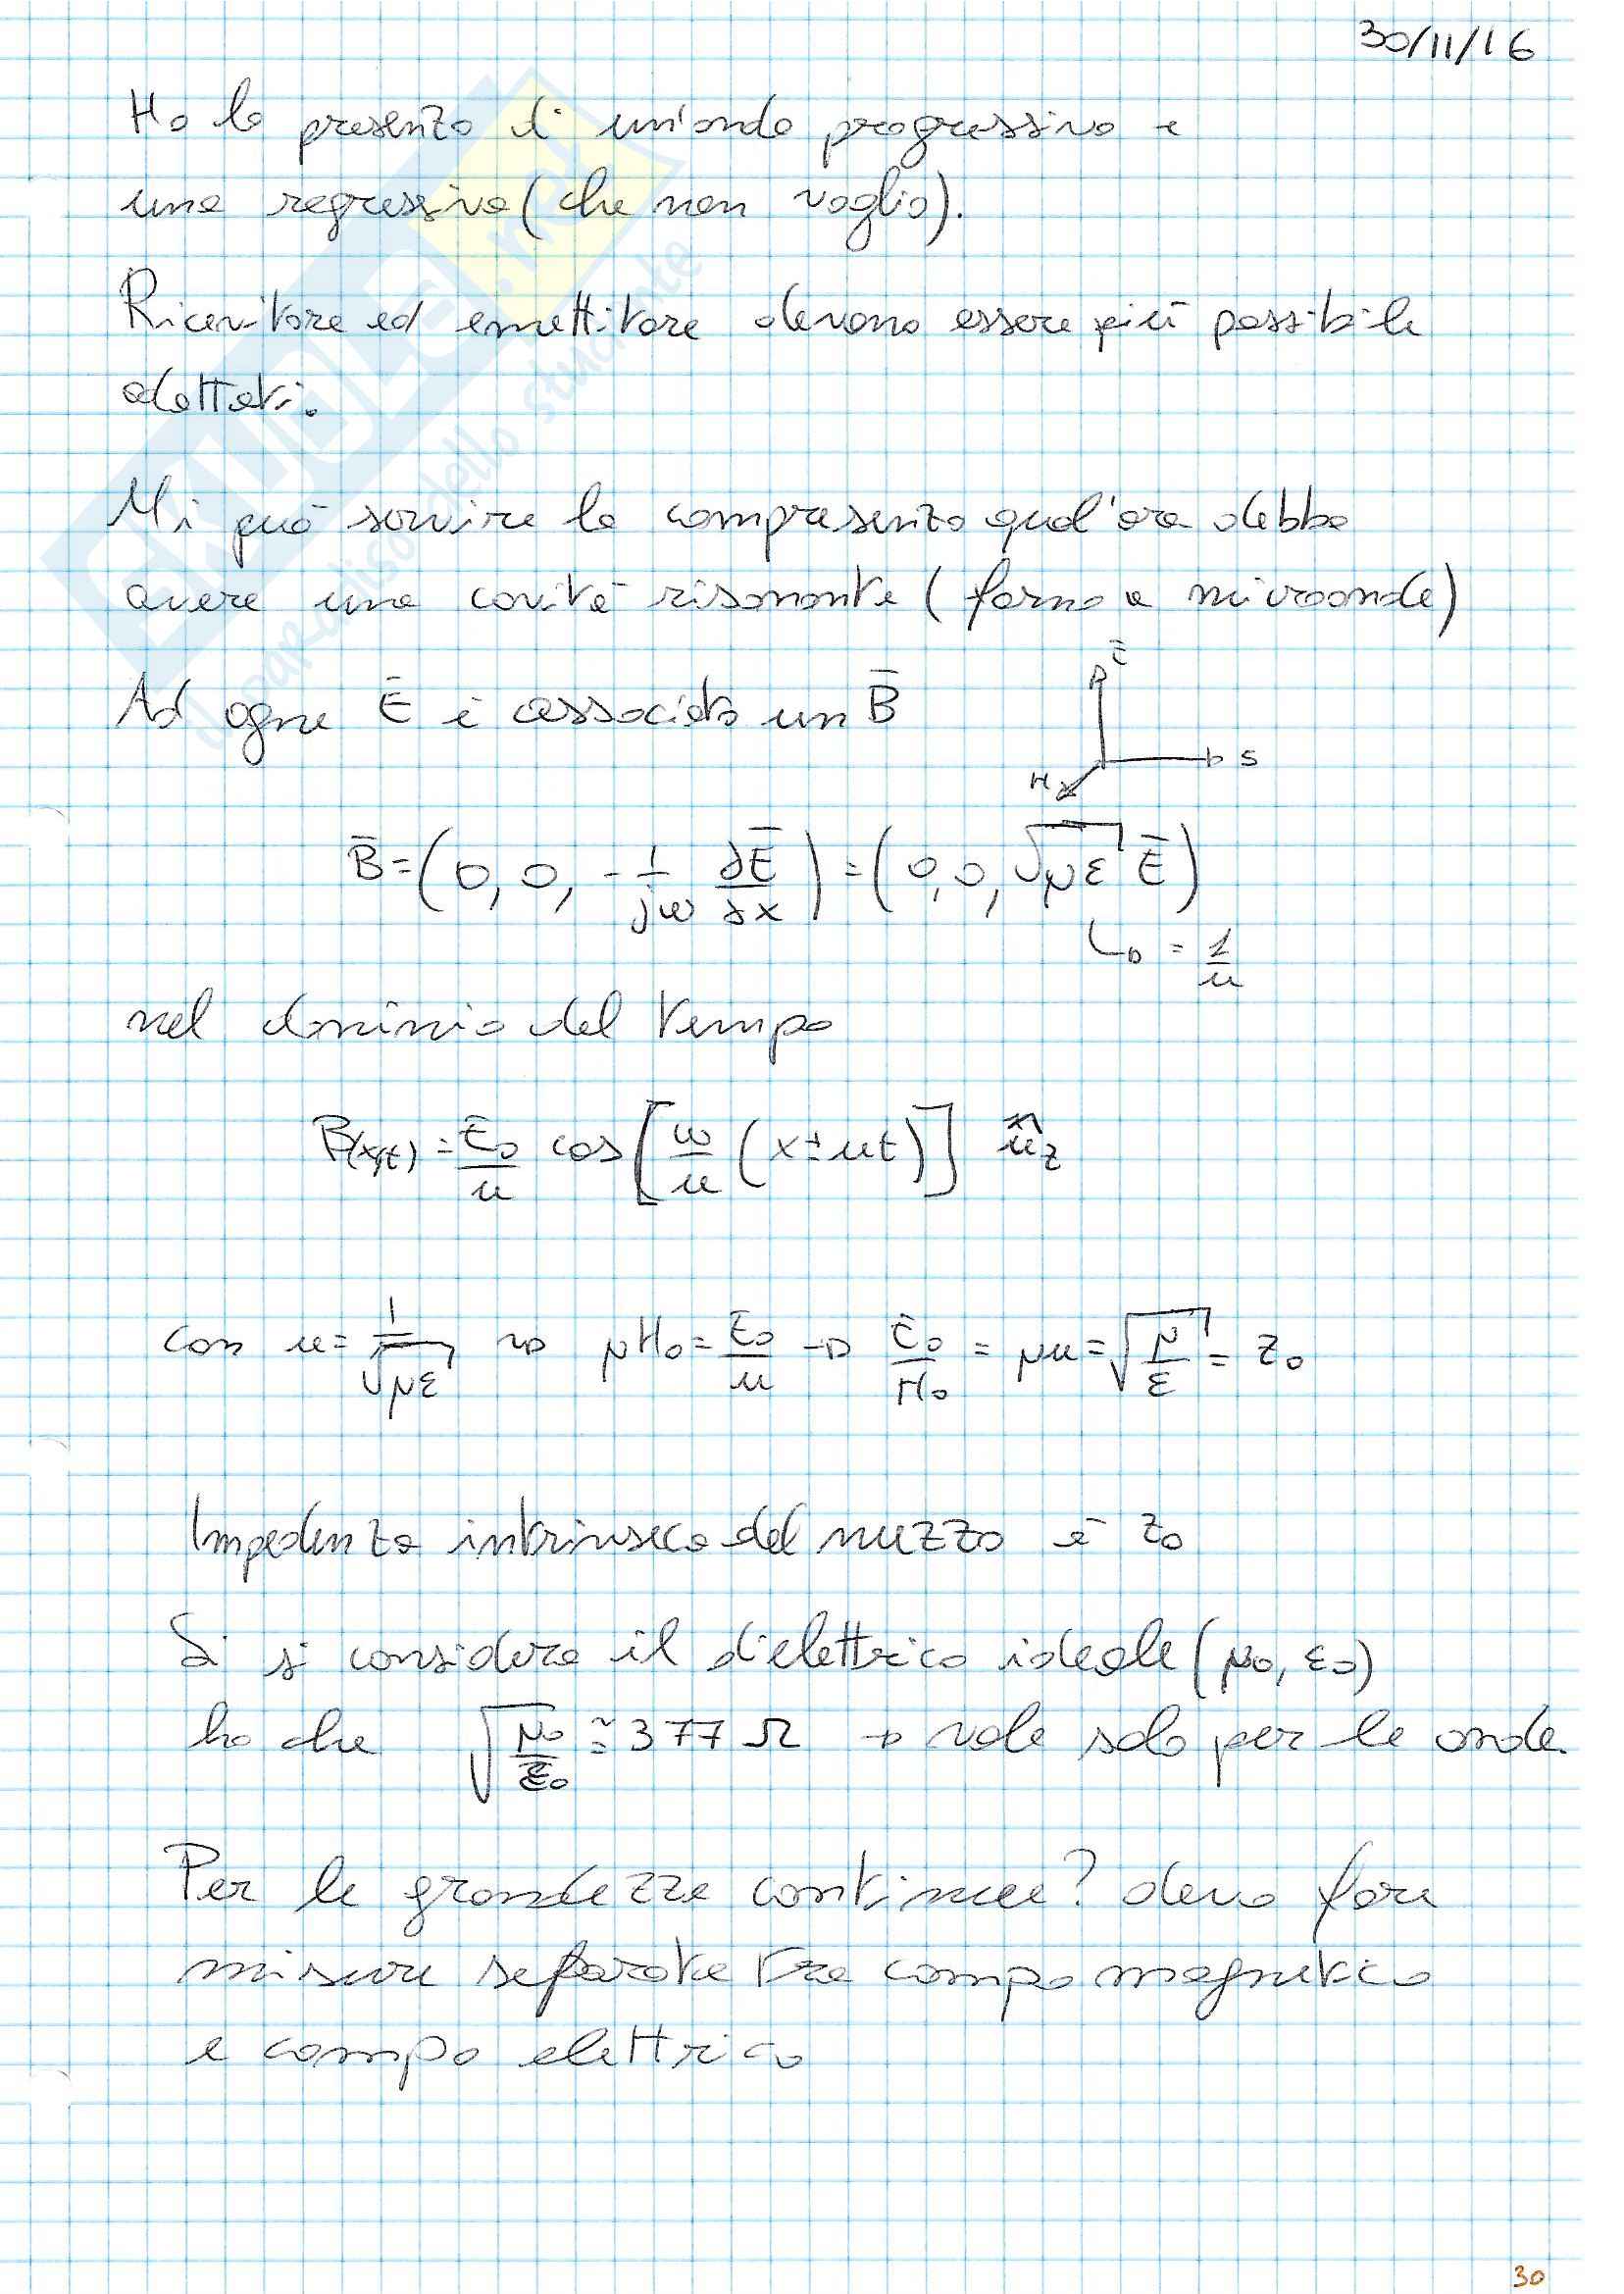 30/11/16
Ho la presenza di un'onda progressiva e
una regressiva (che non voglio).
Ricevitore ed emettitore devono essere più possibile
adattati.
Mi può servire la compresenza qual'ora debba
avere una cavità risonante (forno a microonde)
Ad ogni Ē è associato un B̄
Ē
S
H
B̄ = (0, 0, -1/jω ∂Ē/∂x) = (0, 0, √με Ē)
↳ = 1/u
nel dominio del tempo
B(x,t) = E₀/u cos[ω/u (x ± ut)] û_z
con u = 1/√με → μH₀ = E₀/u → E₀/H₀ = μu = √(μ/ε) = Z₀
Impedenza intrinseca del mezzo è Z₀
Si si considera il dielettrico ideale (μ₀, ε₀)
ho che √(μ₀/ε₀) ≃ 377 Ω → vale solo per le onde.
Per le grandezze continue? devo fare
misure separate tra campo magnetico
e campo elettrico
30